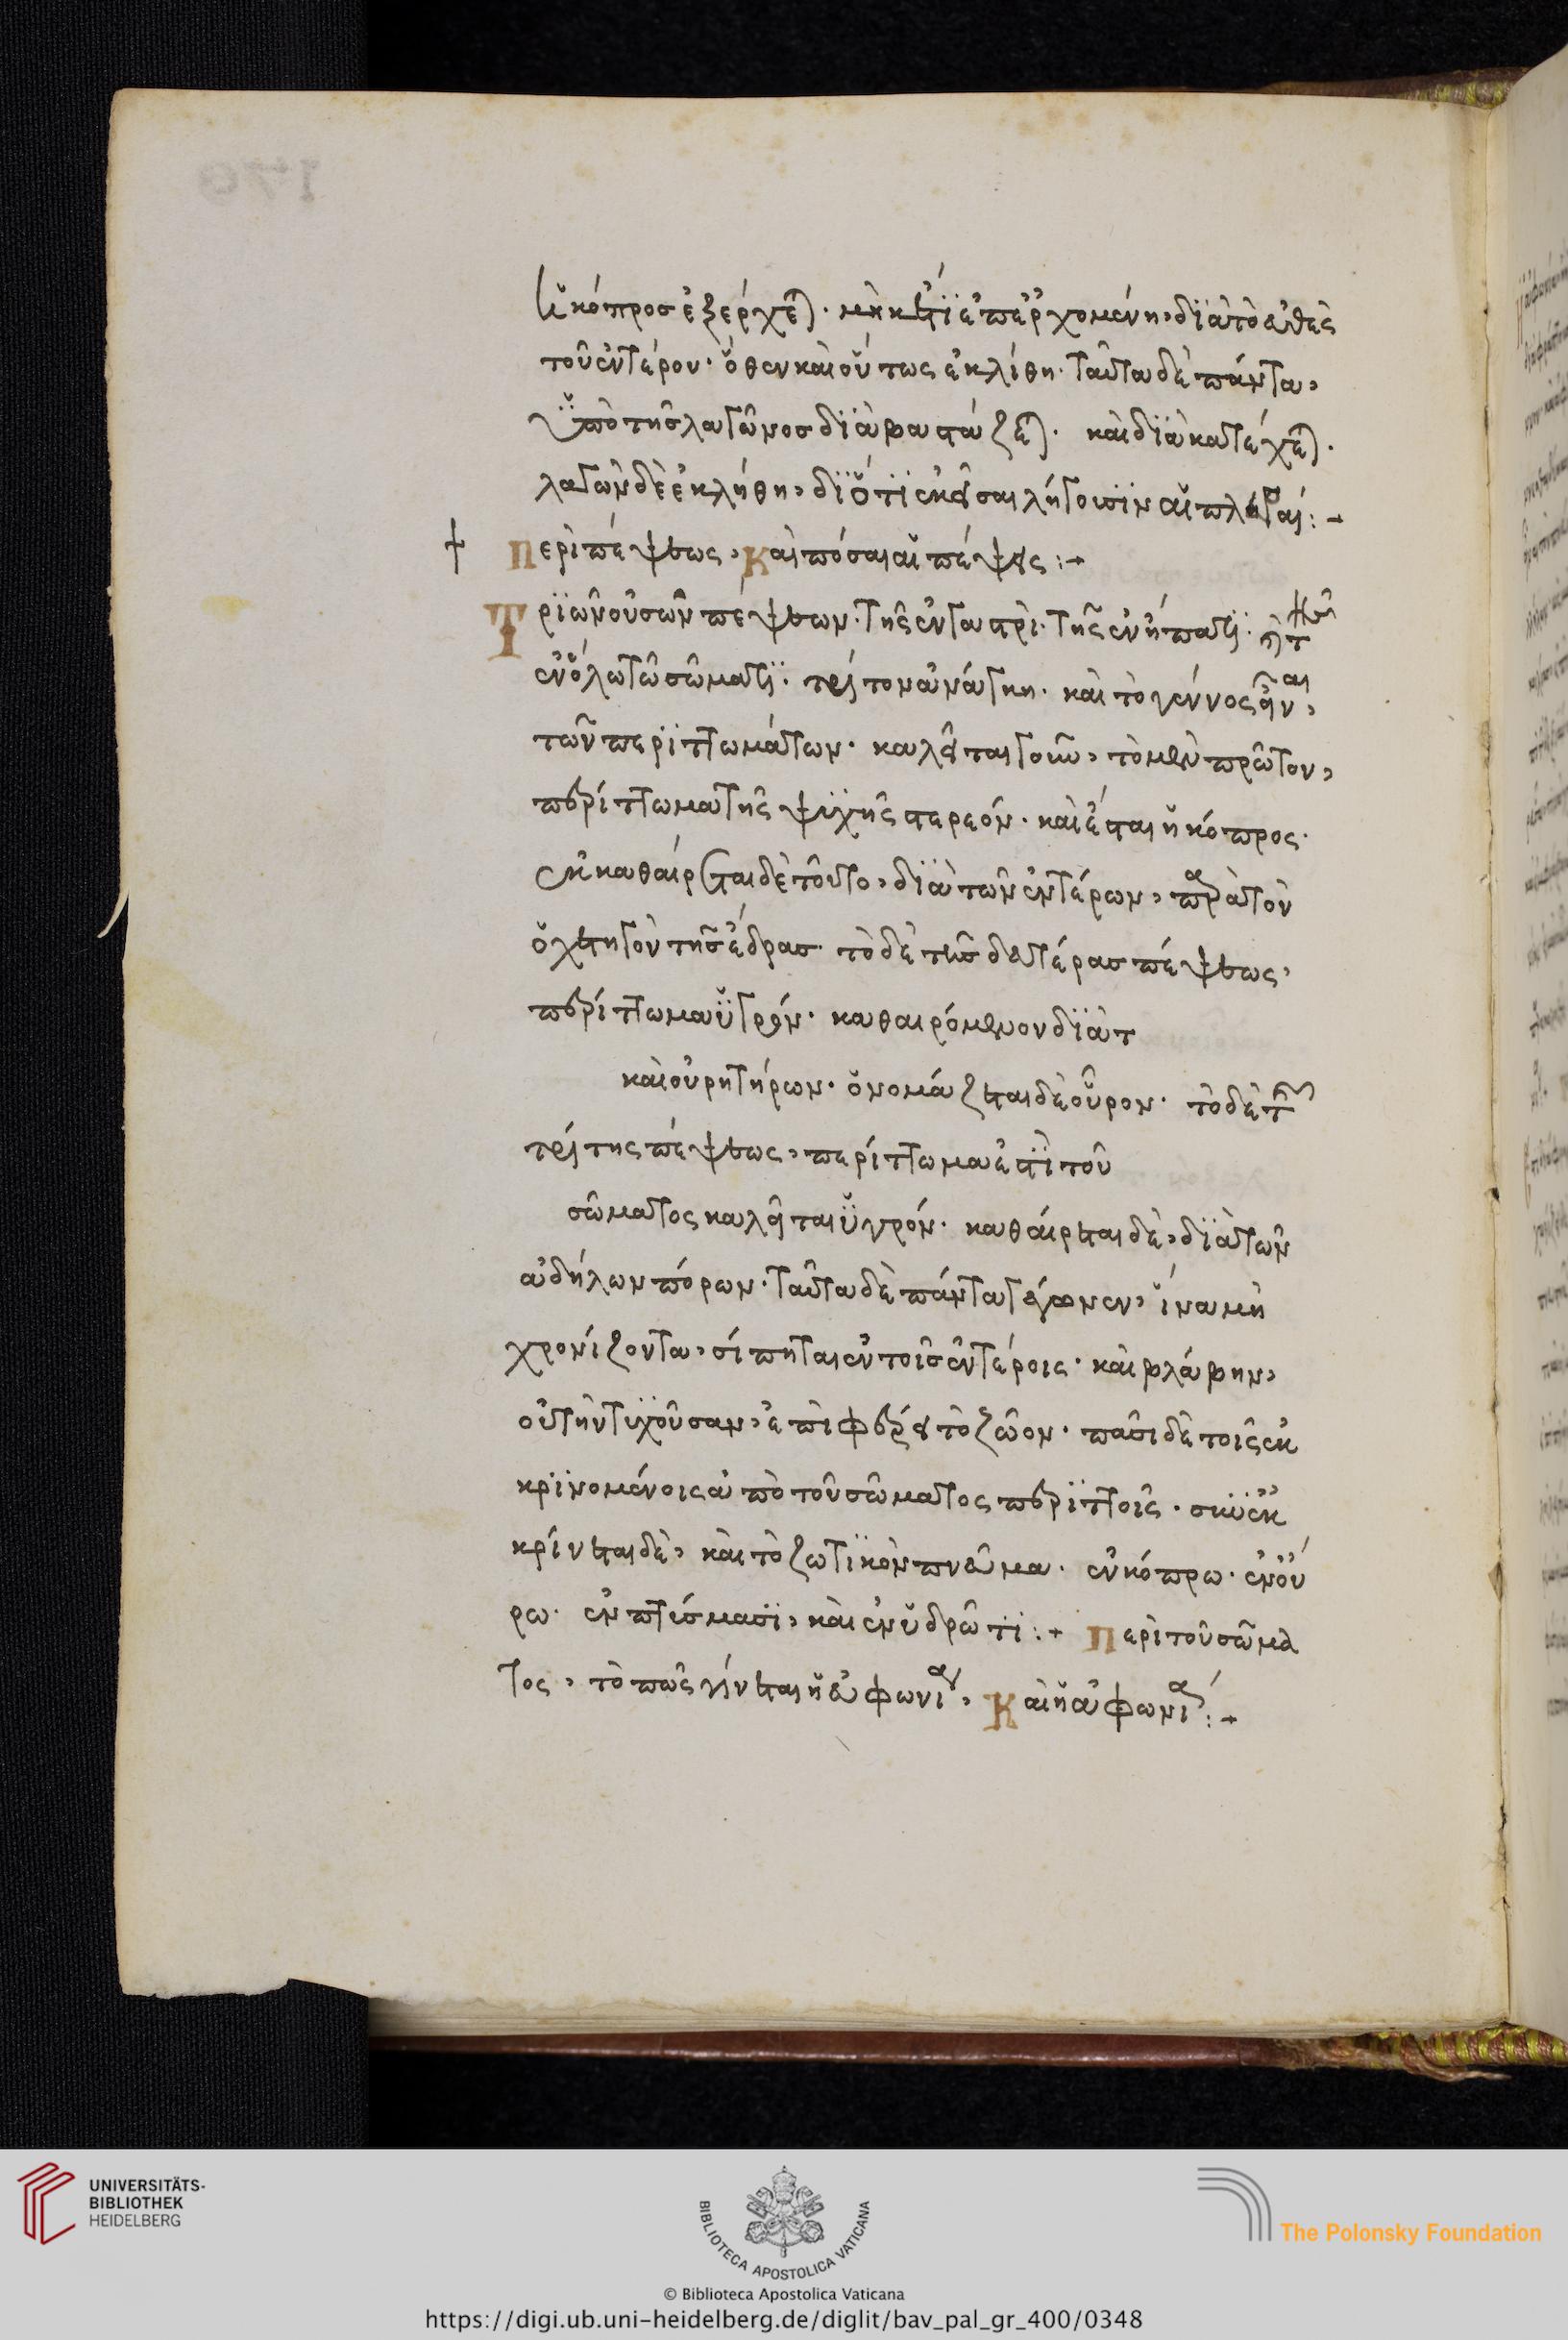 170
ἡ κόπρος ἐξέρχεται. μὴ ἐπερχομένη, διὰ τὸ εὐθὲς
τοῦ ἐντέρου. ὅθεν καὶ οὕτως ἐκλίθη. ταῦτα δὲ πάντα,
ὑπὸ τῆς λαγῶνος διαβαστάζεται. καὶ διακατέχεται.
λαγὼν δὲ ἐκλήθη, διότι ἐκεῖσαι λήγουσιν αἱ πλάται:
περὶ πέψεως, καὶ πόσαι αἱ πέψεις:
Τριῶν οὐσῶν πέψεων. τῆς ἐν γαστρί. τῆς ἐν ἥπατι.
ἐν ὅλω τῶ σώματι. τρίτον ἀνάγκη. καὶ τὸ γέννος εἶναι,
τῶν περιττωμάτων. καλεῖται γοῦν, τὸ μὲν πρῶτον,
περίττωμα τῆς ψυχῆς στερεόν. καὶ ἔσται ἡ κόπρος.
ἐκκαθαίρεται δὲ τοῦτο, διὰ τῶν ἐντέρων, παρὰ τὸν
ὀχετηγὸν τῆς ἕδρας. τὸ δὲ τῆς δευτέρας πέψεως,
περίττωμα ὑγρόν. καθαιρόμενον διὰ τ
καὶ οὐρητήρων. ὀνομάζεται δὲ οὖρον. τὸ δὲ τῆς
τρίτης πέψεως, περίττωμα ἐστὶ τοῦ
σώματος καλεῖται ὑγρόν. καθαίρεται δὲ, διὰ τῶν
ἀδήλων πόρων. ταῦτα δὲ πάντα γέγονεν, ἵνα μὴ
χρονίζοντα, σίπηται ἐν τοῖς ἐντέροις. καὶ βλάβην,
οὐ τὴν τυχοῦσαν, ἐπιφέρει τὸ ζῶον. πᾶσι δὲ τοῖς ἐκ
κρινομένοις ἀπὸ τοῦ σώματος περιττοῖς. συνεκ
κρίνεται δὲ, καὶ τὸ ζωτικὸν πνεῦμα. ἐν κόπρω. ἐν οὔ
ρω. ἐν πτύσμασι, καὶ ἐν ὑδρῶτι: περὶ τοῦ σώμα
τος, τὸ πῶς γίνεται ἡ εὐφωνία, καὶ ἡ ἀφωνία:
UNIVERSITÄTS-
BIBLIOTHEK
HEIDELBERG
BIBLIOTECA APOSTOLICA VATICANA
The Polonsky Foundation
© Biblioteca Apostolica Vaticana
https://digi.ub.uni-heidelberg.de/diglit/bav_pal_gr_400/0348